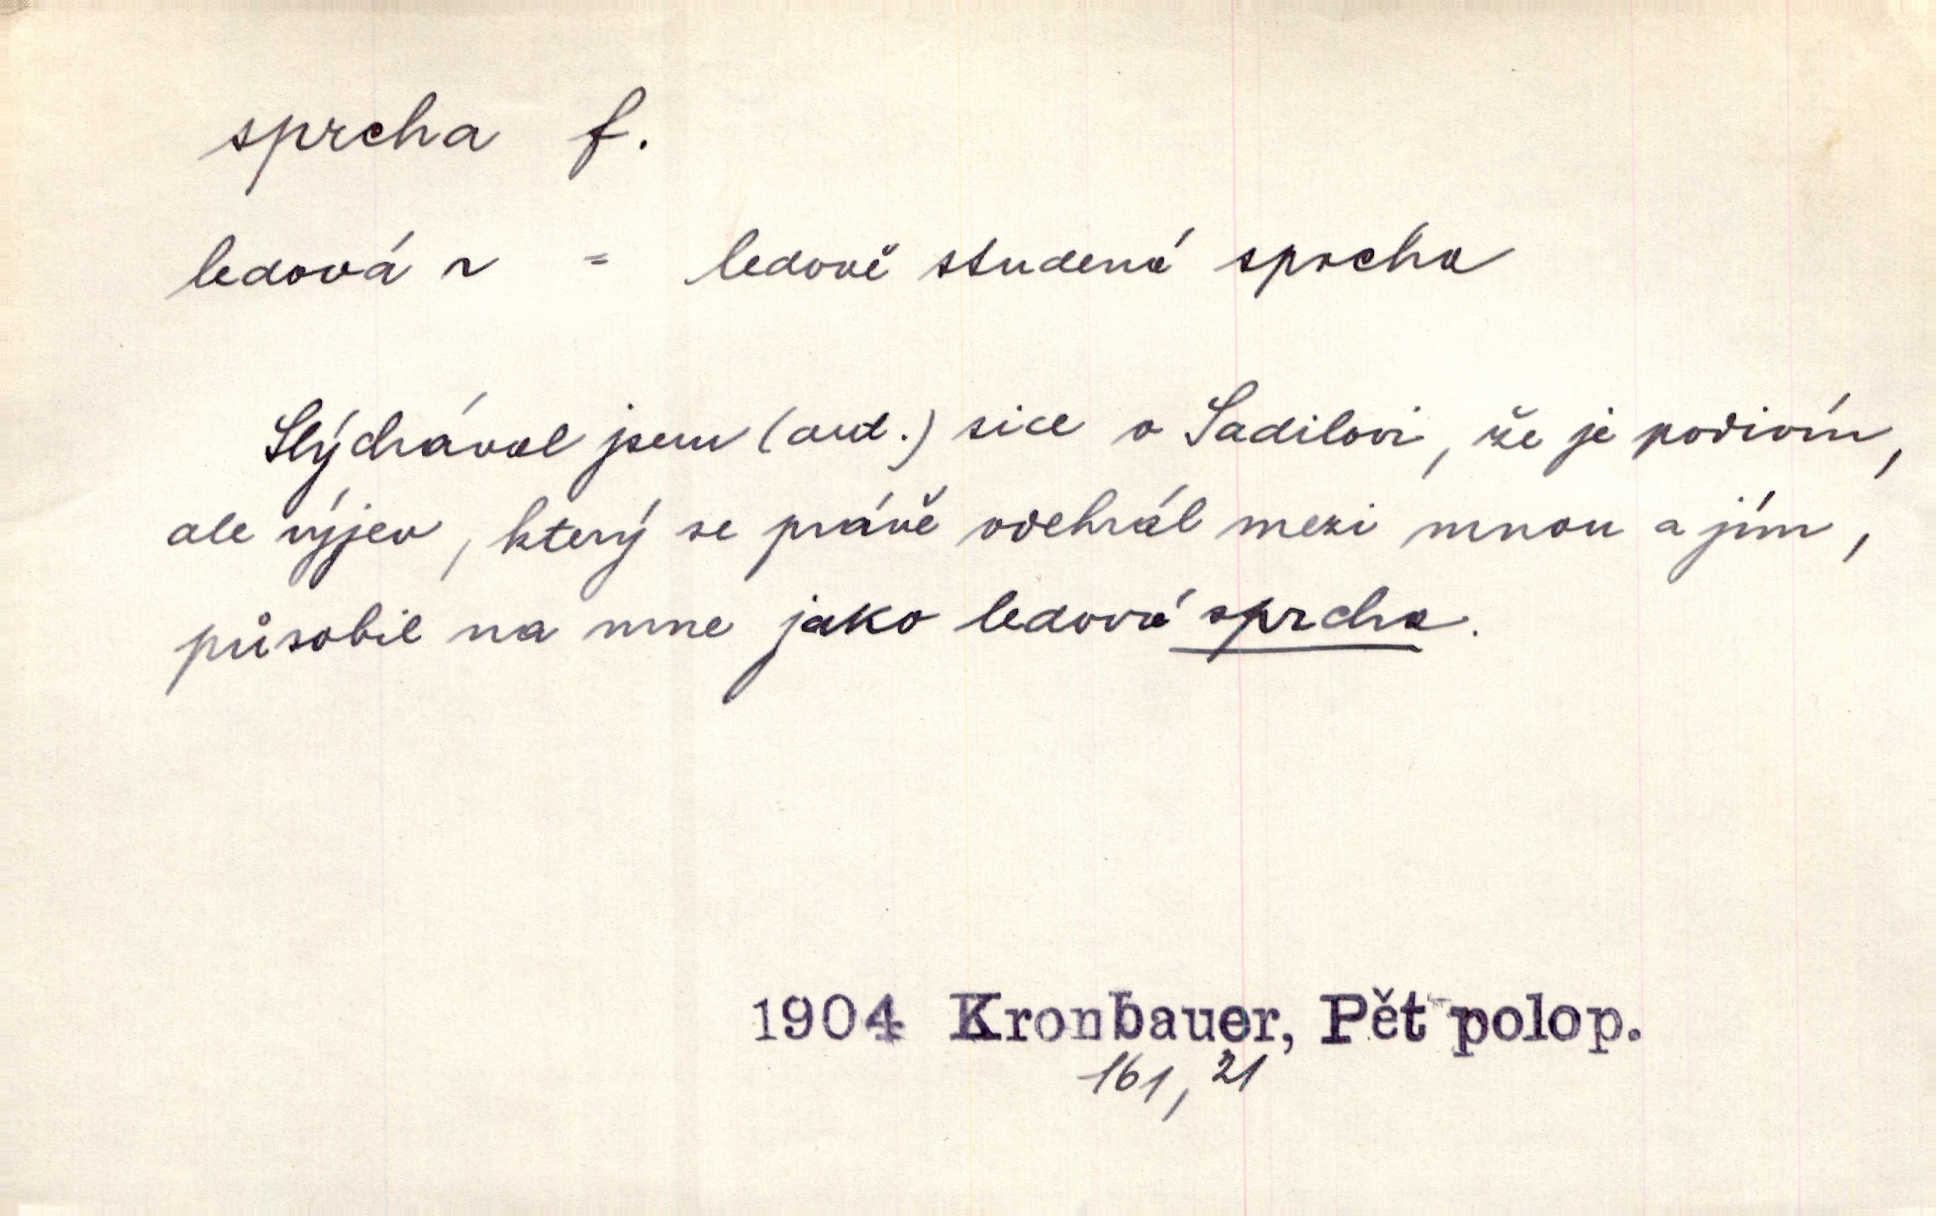 sprcha f.
ledová ~ = ledově studená sprcha
Slýchával jsem (aut.) sice o Sadilovi, že je podivín,
ale výjev, který se právě odehrál mezi mnou a jím,
působil na mne jako ledová sprcha.
1904 Kronbauer, Pět polop.
161, 21